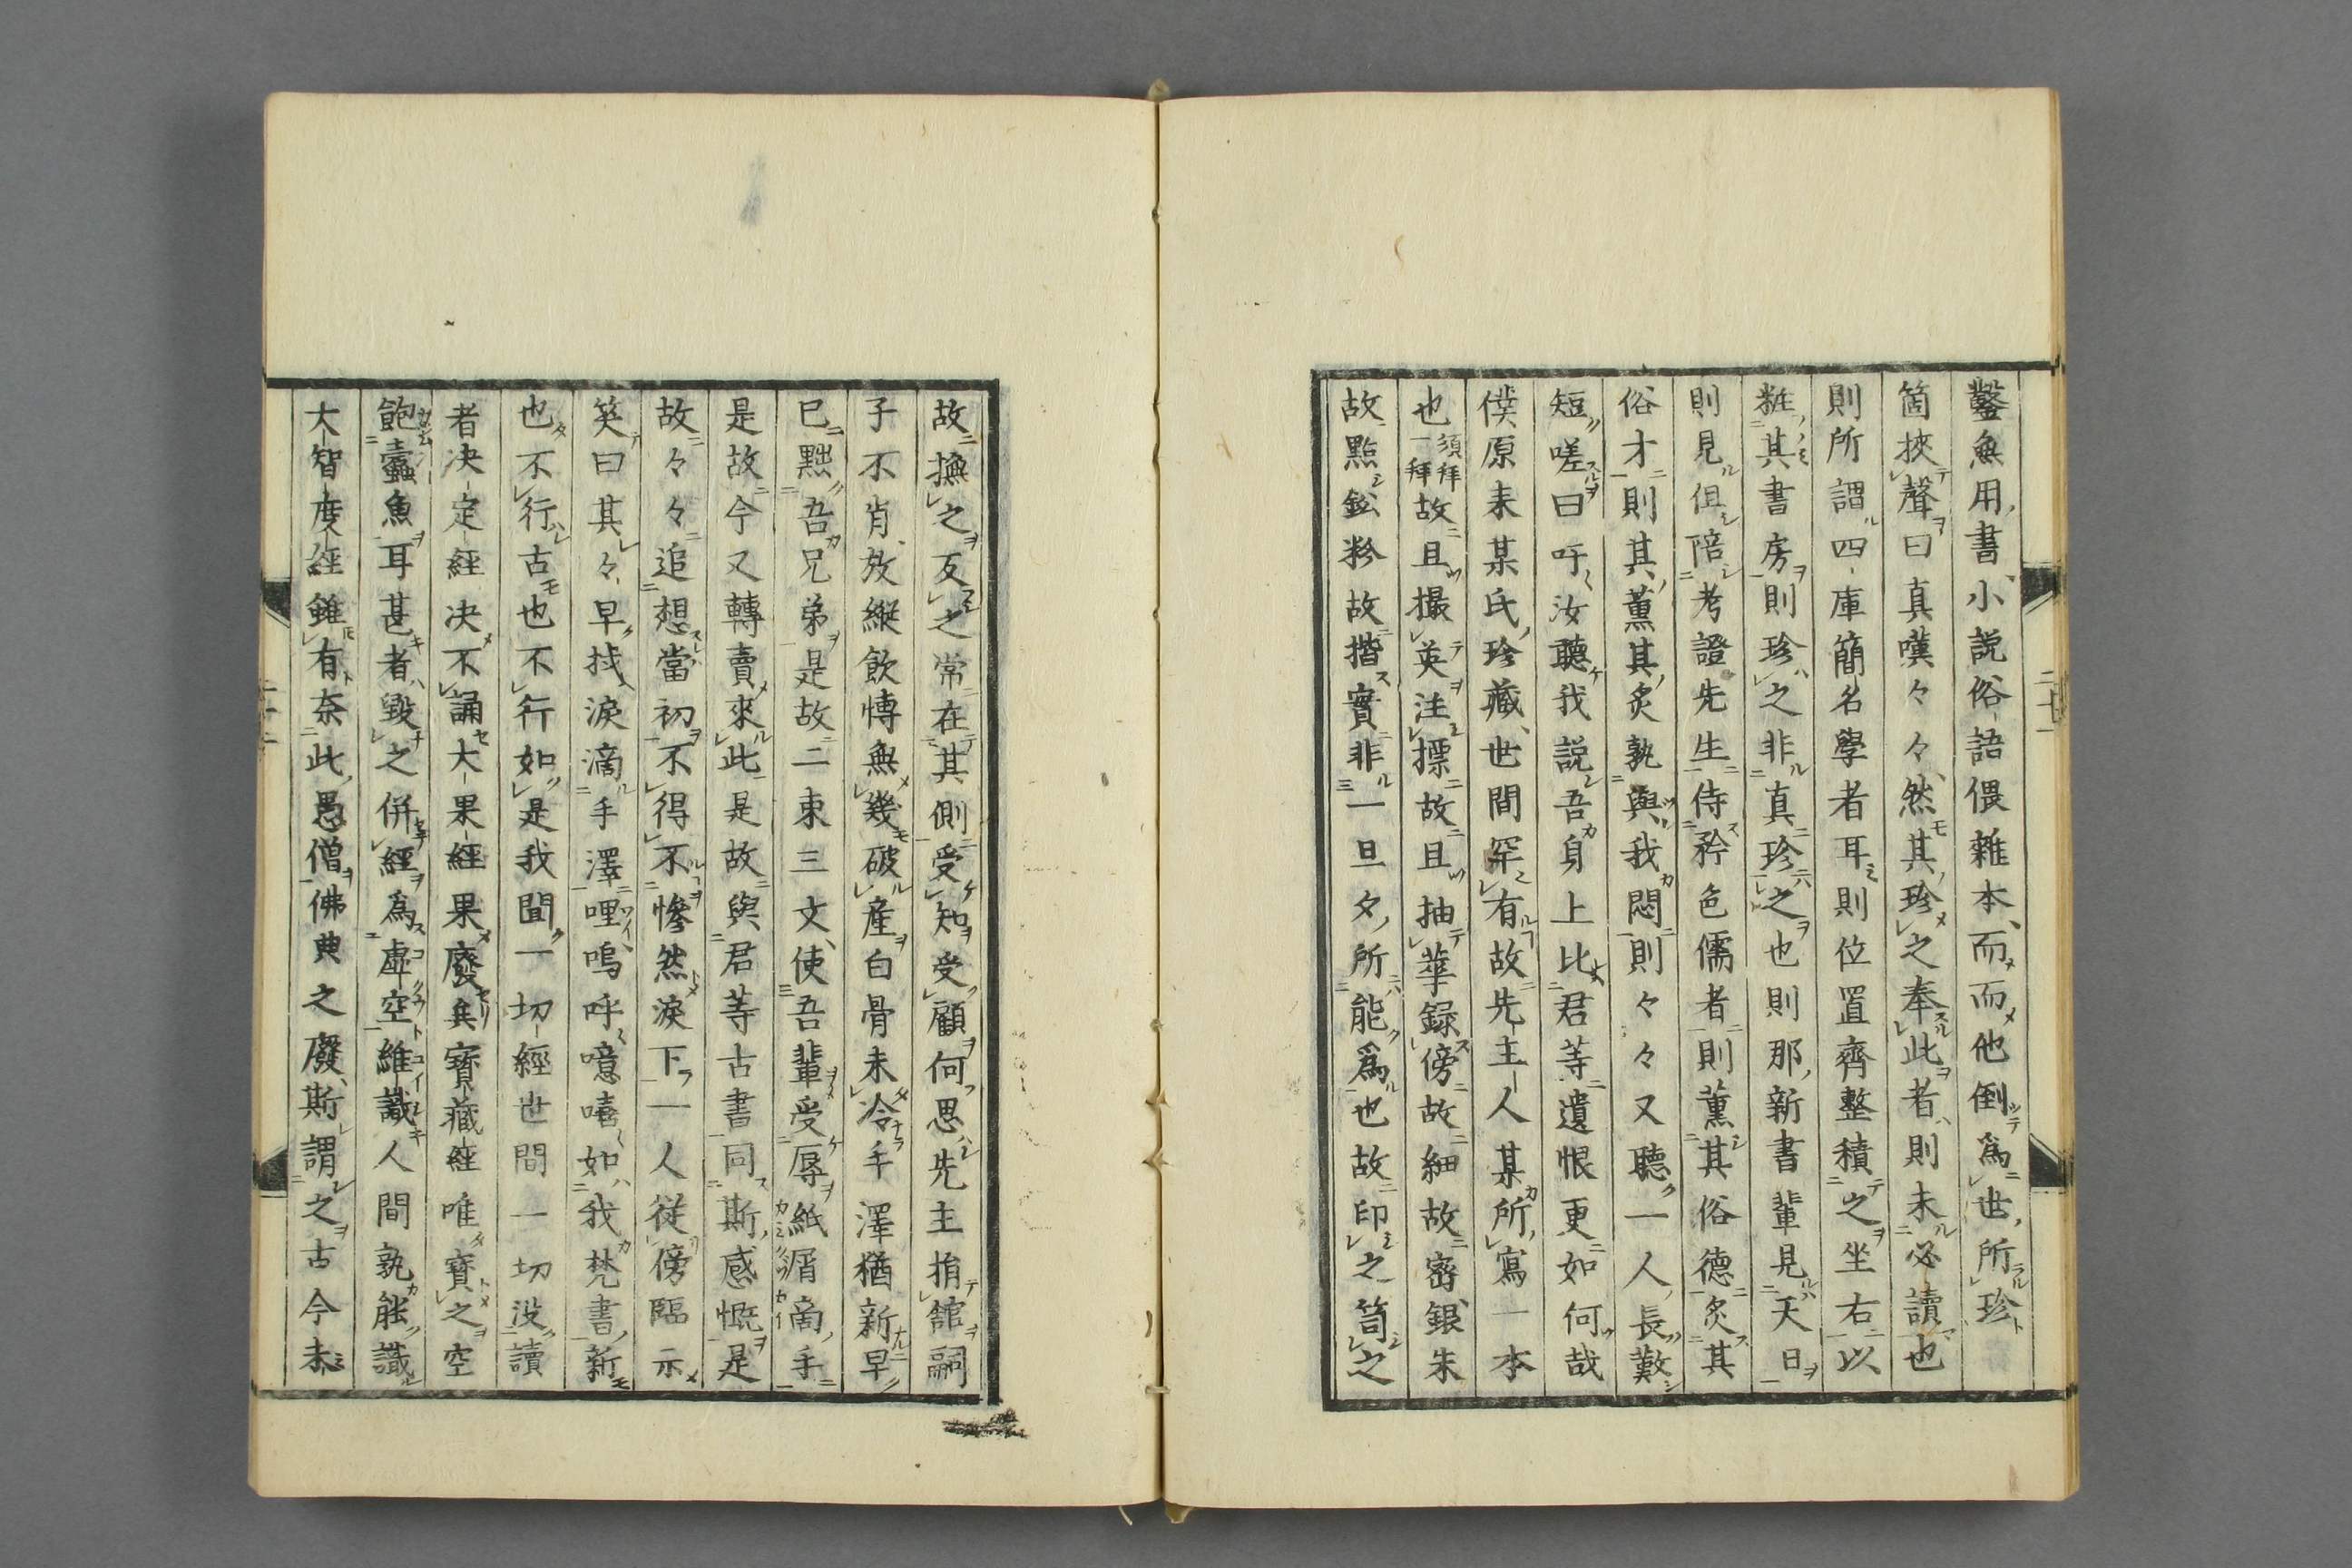 鑿無用書小説俗語偎雜本而而他倒爲世所珍
箇挾聲曰真嘆々々然其珍之奉此者則未必讀也
則所謂四庫簡名學者耳則位置齊整積之坐右以
粧其書房則珍之非真珍之也則那新書輩見天日
則見伹陪考證先生侍矜色儒者則薫其俗德炙其
俗才則其薫其炙孰與我悶則々々又聽一人長歎
短嗟曰吁汝聽我説吾身上比君等遺恨更如何哉
僕原来某氏珍藏世間罕有故先主人某所寫一本
也須拜一拜故且撮英注標故且抽華録傍故細故密銀朱
故點鉛粉故揩實非一旦夕所能爲也故印之笥之
故撫之友之常在其側受知受顧何思先主捐舘嗣
子不肖放縱飲慱無幾破產白骨未冷手澤猶新早
已黜吾兄弟是故二束三文使吾輩受辱紙屑商手
是故今又轉賣來此是故與君等古書同斯感慨是
故々々追想當初不得不慘然淚下一人從傍臨示
笑曰其々早找淚滴手澤哩嗚呼噫嘻如我梵書新
也不行古也不行如是我聞一切經世間一切没讀
者决定經决不誦大果經果廢矣寶藏經唯寶之空
飽蠹魚耳甚者毀之併經爲虛空維識人間孰能識
大智度經雖有奈此愚僧佛典之廢斯謂之古今未